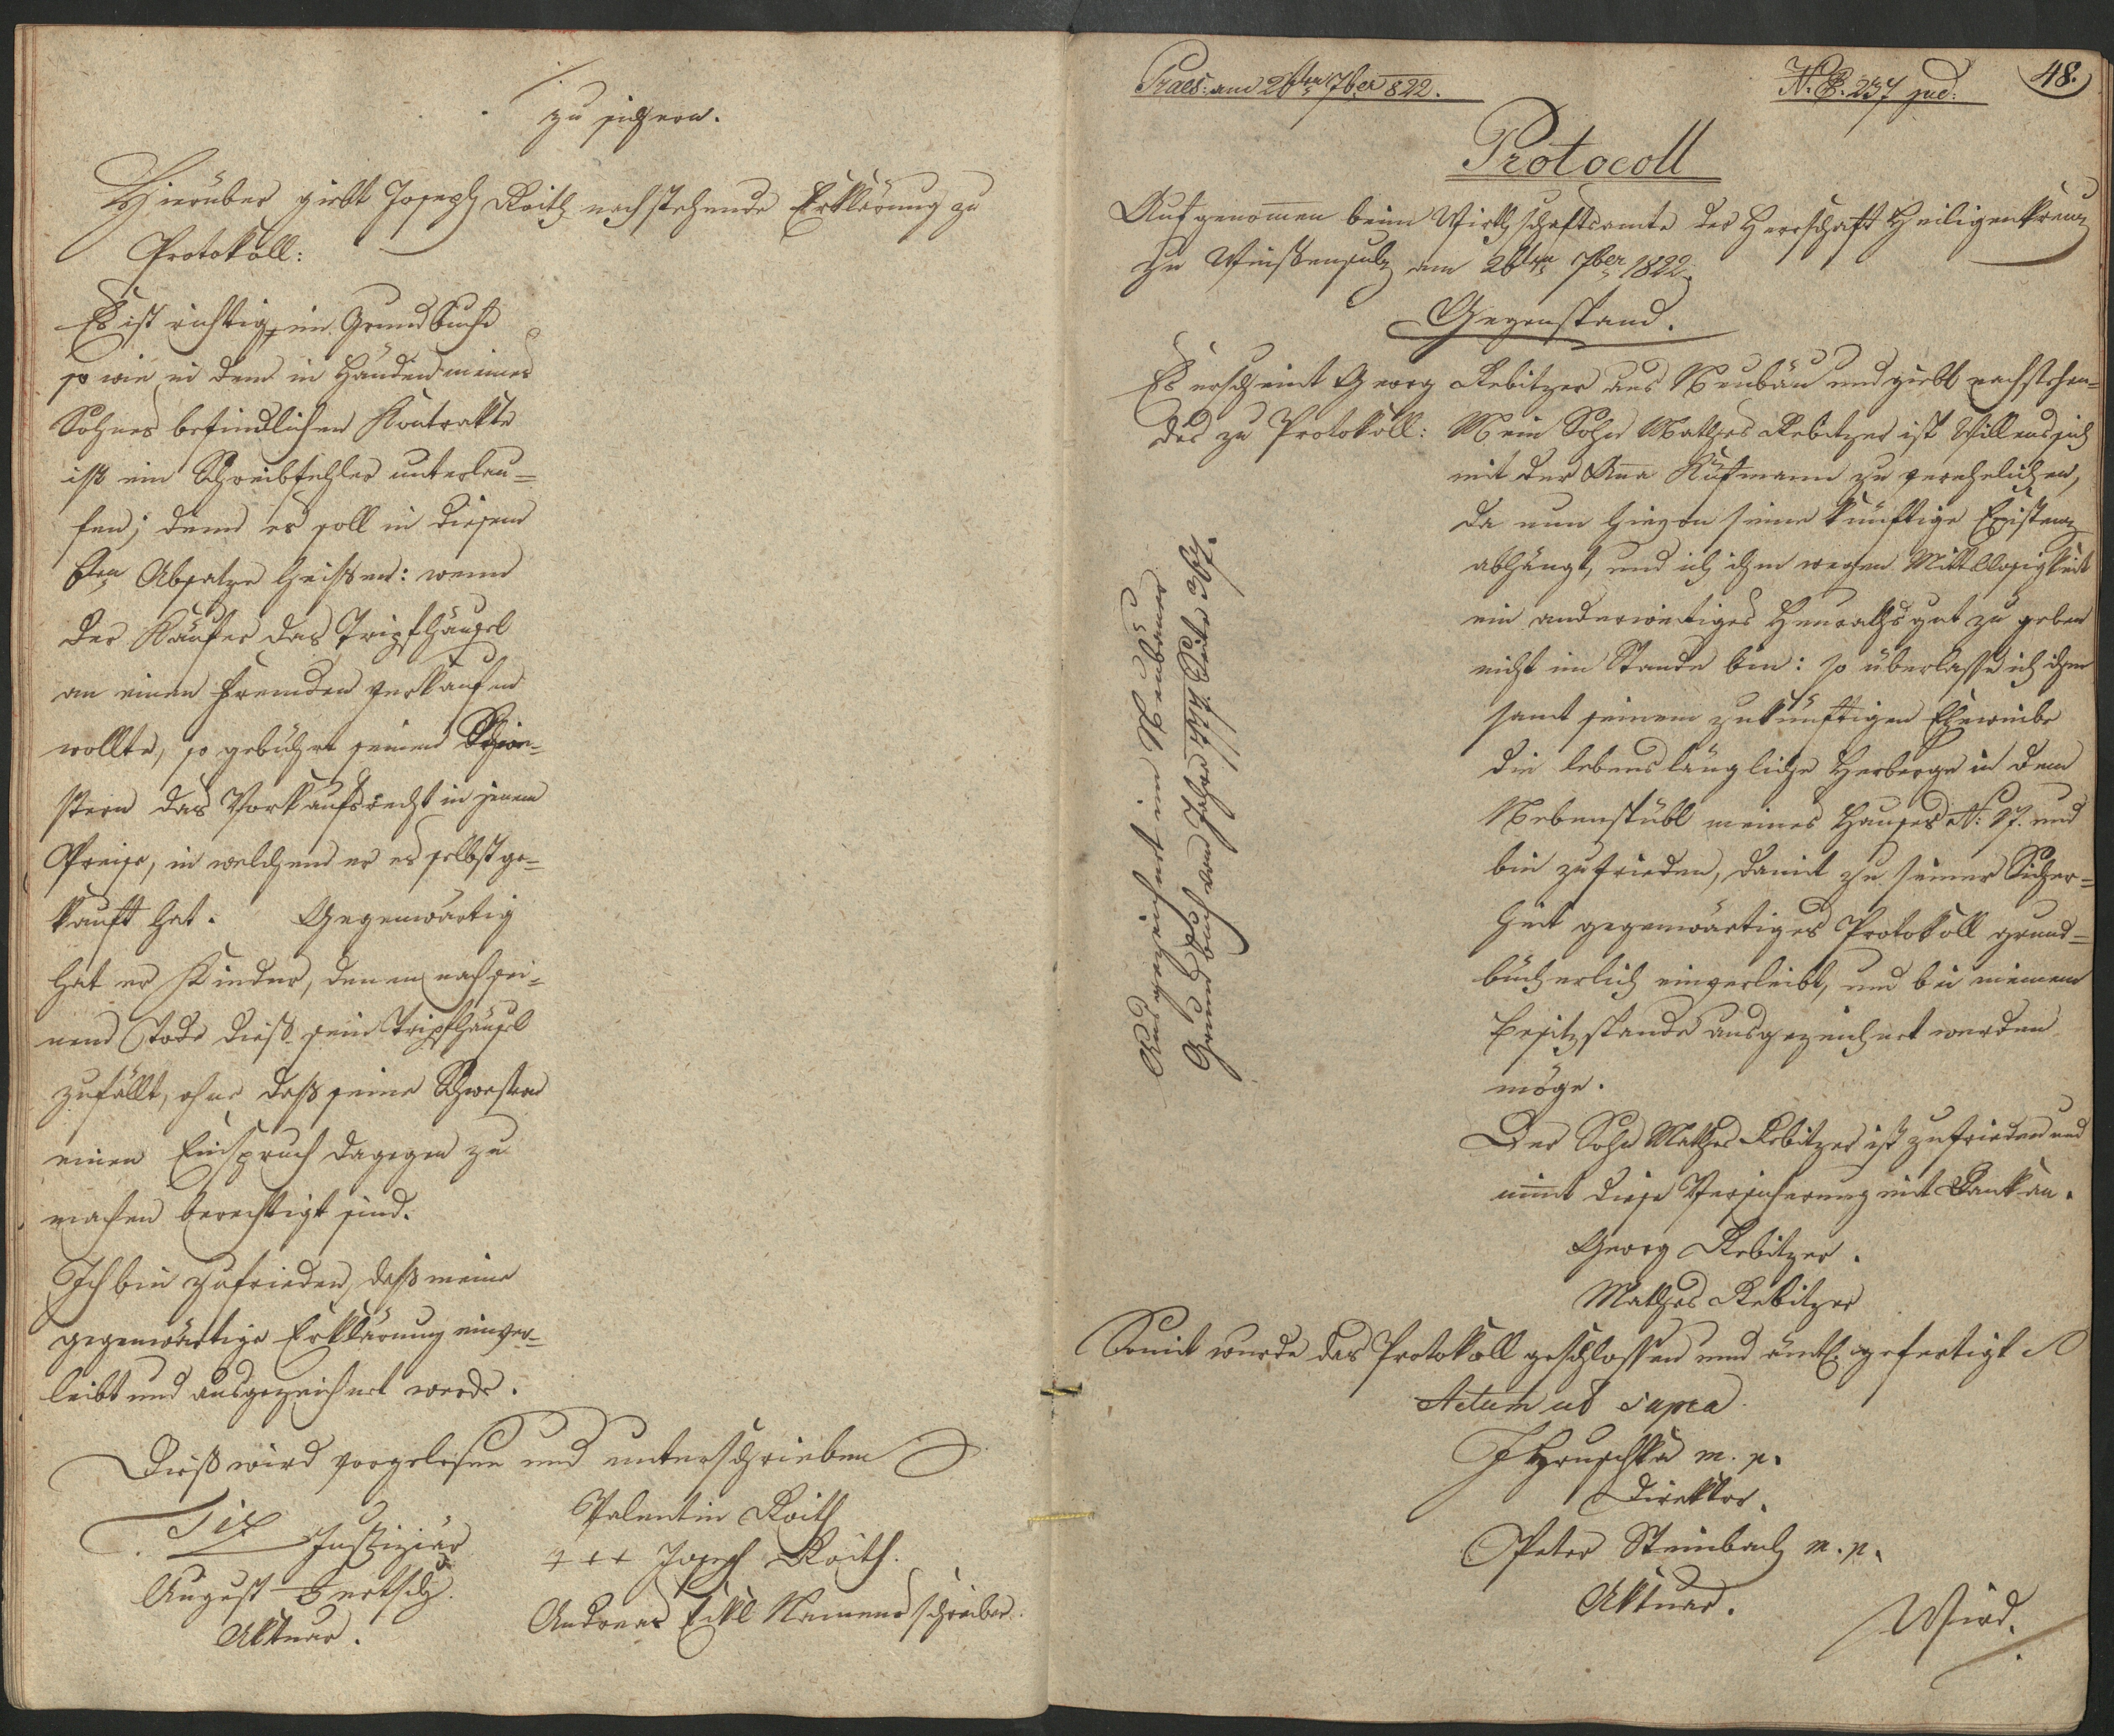 zu sichern.
Hierüber giebt Joseph Roith nachstehende Erklärung zu
Protokoll:
Es ist richtig, im Grundbuche
so wie in dem in Händen meines
Sohnes befindlichen Kontrakte
ist ein Schreibfehler unterlau=
fen; denn es soll in diesem
6ten Absatze heißen: wenn
der Käufer das Tripfhäusel
an einen Fremden verkaufen
wollte, so gebühre seinen Schwe=
stern das Vorkaufsrecht in jenem
Preise, in welchem er es selbst ge=
kauft hat. Gegenwärtig
hat er Kinder, denen nach sei=
nem Tode dieß sein Tripfhäusel
zufällt, ohne daß seine Schwestern
einen Einspruch dagegen zu
machen berechtigt sind.
Ich bin zufrieden, daß meine
gegenwärtige Erklärung einver=
leibt und ausgezeichnet werde.
Dieß wird vorgelesen und unterschrieben
Justiziär
August
Aktuar.
Valentin Roith
+++ Joseph Roith.
Andreas Eckl Namensschreiber.
Praes: am 26ten 7ber 822.
N. E. 237 jud:
48.
Protocoll
Aufgenomen beim Wirthschaftsamte der Herrschaft Heiligenkreuz
zu Weißensulz am 26ten 7ber 1822.
Gegenstand.
Es erscheint Georg Rebitzer aus Neubäu und giebt nachstehen=
des zu Protokoll: Mein Sohn Mathes Rebitzer ist Willens sich
mit der Ana Kufmann zu verehelichen,
da nun hievon seine künftige Existenz
abhängt, und ich ihm wegen Mittellosigkeit
ein anderweitiges Heurathsgut zu geben
nicht im Stande bin: so überlasse ich ihm
samt seinem zukünftigen Eheweibe
die lebenslängliche Herberge in dem
Nebenstübl meines Hauses N: 87. und
bin zufrieden, damit zu seiner Sicher=
heit gegenwärtiges Protokoll grund=
bücherlich einverleibt, und bei meinem
Besitzstande ausgezeichnet werden
möge.
Der Sohn Mathes Rebitzer ist zufrieden und
nimt diese Versicherung mit Dank an.
Georg Rebitzer.
Mathes Rebitzer
Somit wurde das Protokoll geschlossen und ämtl. gefertigt
Actum ut supra
J Hruschka m. p.
Direktor.
Peter Steinbach m. p.
Aktuar.
Wird.
Ausgezeichnet im Neubauer
Grundbuch vom Jahre 1777. Seite 367.